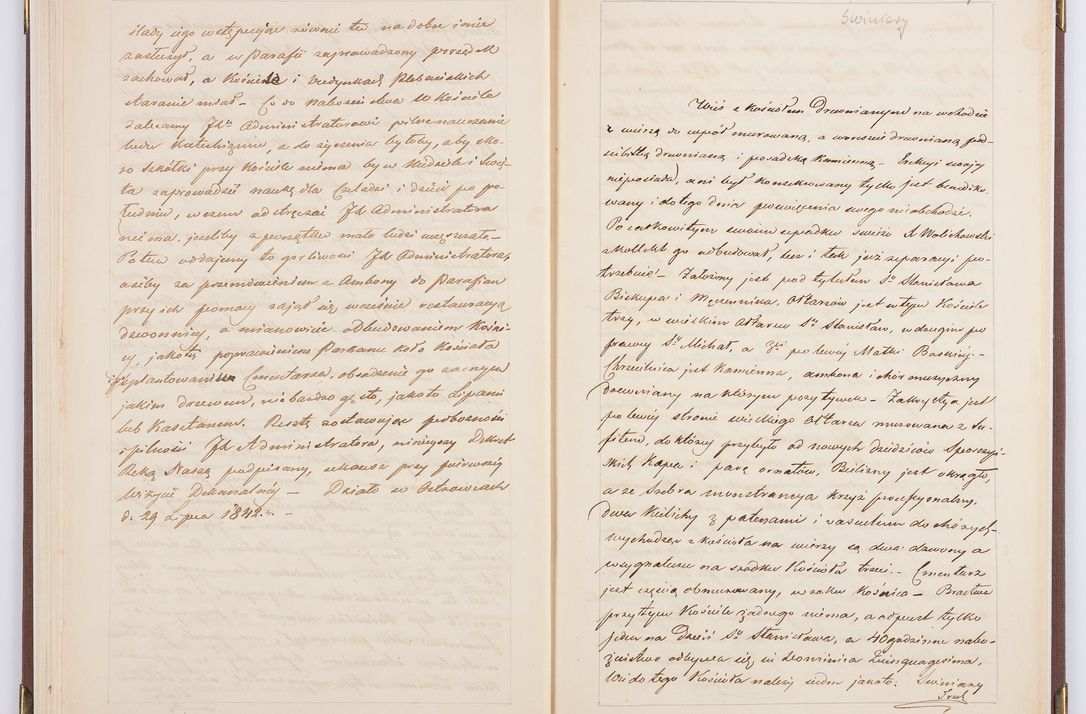 ślady iego wstępuiąc równie tu na dobre imie
zasłużył, a w Parafii zaprowadzony porządek
zachował, a Kościele i Budynkach Plebańskich
staranie miał – Co do nabożeństwa w Kościele
zalecamy JX Administratorowi pilne nauczanie
ludu Katechizmu, a do życzenia byłoby, aby sko-
ro Szkółki przy Kościele niema by w Niedziele i Świę-
ta zaprowadził naukę dla Czeladzi i dzieci po po-
łudniu, w czem odstręczać JX Administratora
nie ma, jeżeliby z początku mało ludzi uczęszczało –
Potem oddajemy to gorliwości JX Administratora,
ażeby za przemówieniem z Ambony do Parafian
przy ich pomocy zajął się wcześnie restauracyą
dzwonnicy, a mianowicie odbudowaniem Kośni-
cy, jakoteż poprawieniem Parkanu koło Kościoła
i splantowaniem Cmentarza, obsadzenie go zacnym
jakim drzewem, nie bardzo gęsto, jakoto Lipami
lub Kasztanem. Resztę zostawując pobożności
i pilności JX Administratora, niniejszy Dekret
Ręką Naszą podpisany, schować przy pierwszej
Wizycie Dekanalnej – Działo w Ostrowcach
d. 29 Lipca 1842. –
Świniary
Wieś z kościołem Drewnianym na wschodzie
z wieżą do wpół murowaną, a wierzch drewnianą pod-
subitką drewnianą i posadzką kamienną – Erekcyi swojej
nieposiada, ani był konsekrowany tylko jest benedyko-
wany i do tego dnia poświęcenia swego nieobchodzi.
Po całkowitym swoim upadku świeżo X Wolichowski
z Kollekt go odbudował, lecz i tak już reparacyi po-
trzebuie – Założony jest pod tytułem Sº Stanisława
Biskupa i Męczennika, Ołtarzów jest w tym Kościele
trzy, w wielkim Ołtarzu Sº Stanisław, w drugim po
prawy Sº Michał, a 3ci po lewej Matki Boskiej. –
Chrzcielnica jest Kamienna, ambona i chór muzyczny
drewniany na którym pozytywek – Zakrystya jest
po lewej stronie wielkiego Ołtarza murowana z Su-
fitem, do której przybyło od nowych dziedziców
skich Kapa i parę ornatów, Bielizny jest okrągło,
a ze srebra monstrancya krzyż processyonalny,
dwa Kielichy z patenami i vasculum do chorych –
wychodząc z kościoła na wierzy są dwa dzwony a
sygnaturce na środku Kościoła trzeci – Cmentarz
jest częścią obmurowany, w rohu Kośnica – Bractwa
przy tym Kościele żadnego niema, a odpust tylko
jeden na Dzień Sº Stanisława, a 40godzinne nabo-
żeństwo odbywa się in Dominica Quinquagesima.
Wsi do tego Kościoła należy siedm jakoto: Świniary